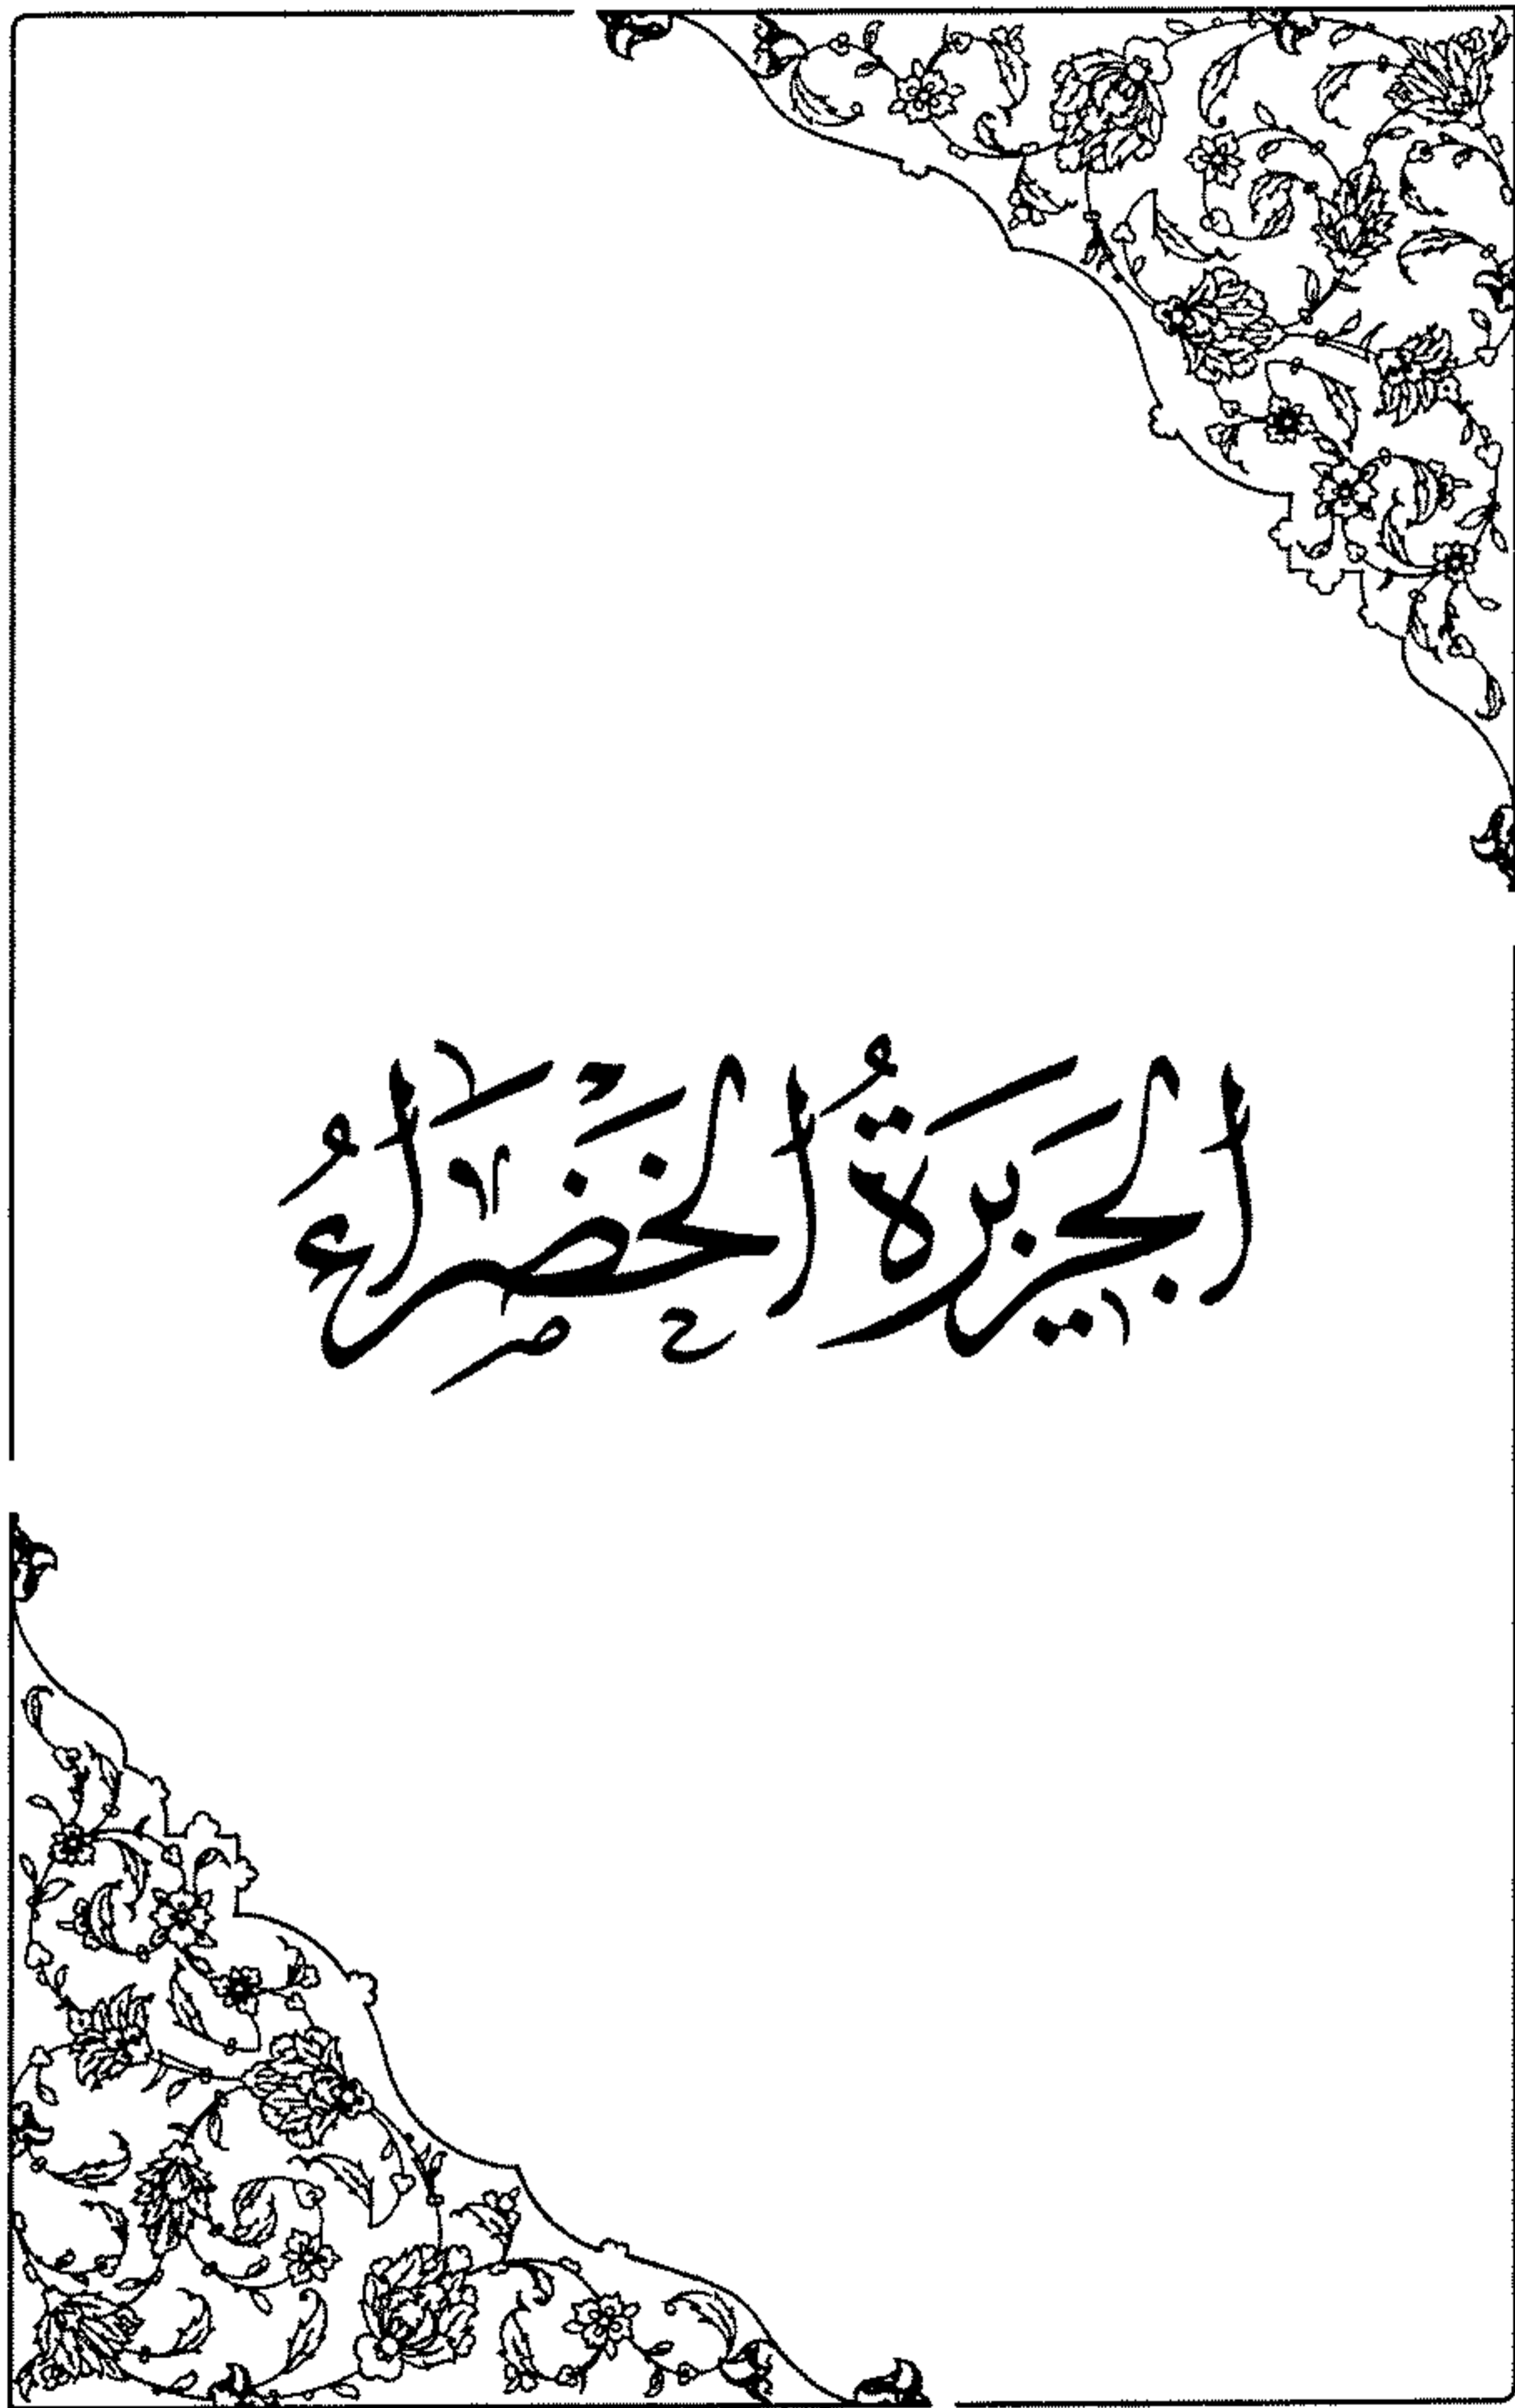 الجَزيرَةُ الخَضْرَاءُ